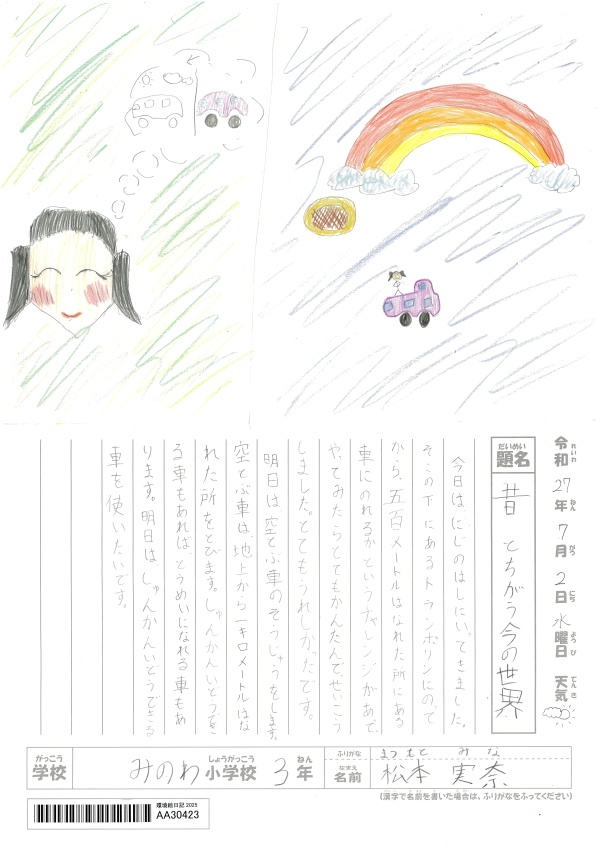 令和27年7月2日水曜日 天気
れいわ ねん がつ にち ようび てんき
だいめい
題名 昔とちがう今の世界
今日は、にじのはしにいってきました。
そこの下にあるトランポリンにのって
から、五百メートルはなれた所にある
車にのれるかというチャレンジがあって、
やってみたらとてもかんたんで、せいこう
しました。とてもうれしかったです。
明日は空とぶ車のそうじゅうをします。
空とぶ車は、地上から一キロメートルはな
れた所をとびます。しゅんかんいどうでき
る車もあれば、とうめいになれる車もあ
ります。明日は、しゅんかんいどうできる
車を使いたいです。
がっこう しょうがっこう ねん
学校 みのわ小学校 3年
ふりがな まつもと みな
なまえ
名前 松本 実奈
(漢字で名前を書いた場合は、ふりがなをふってください)
環境絵日記 2025
AA30423